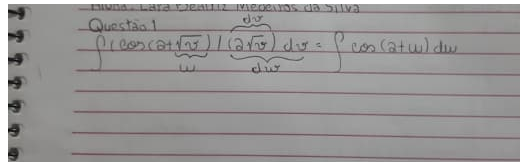 Aluna: Lara Beatriz Medeiros da Silva
Questão 1
dv
∫(cos(2+√v) / (2√v) dv = ∫ cos(2+u) du
u du